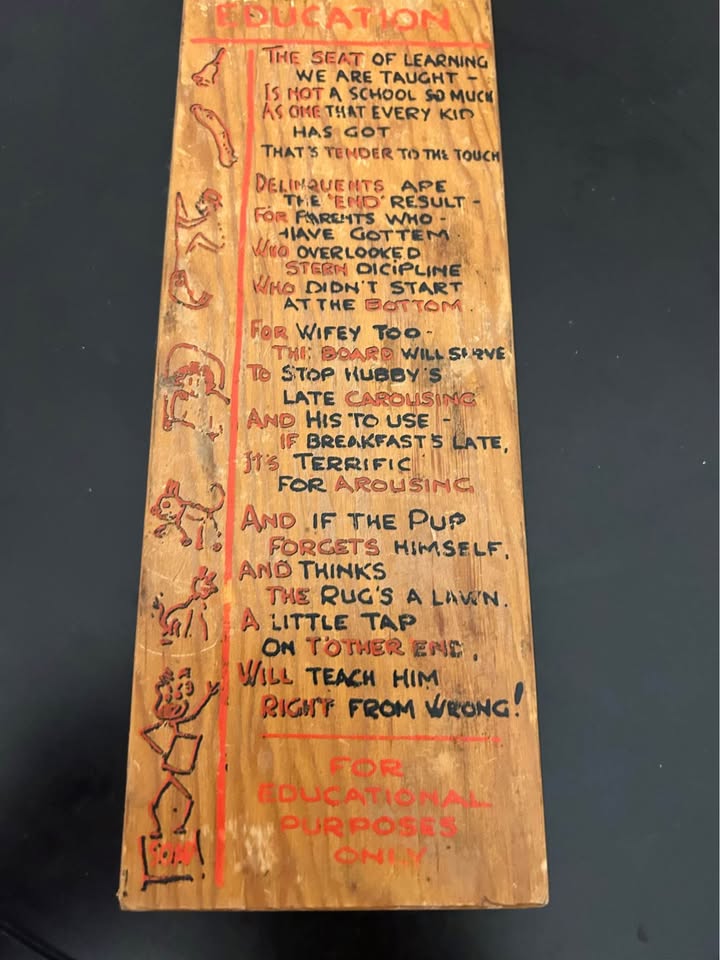 EDUCATION
THE SEAT OF LEARNING
WE ARE TAUGHT -
IS NOT A SCHOOL SO MUCH
AS ONE THAT EVERY KID
HAS GOT
THAT'S TENDER TO THE TOUCH
DELINQUENTS ARE
THE 'END' RESULT -
FOR PARENTS WHO -
HAVE GOTTEN
WHO OVERLOOKED
STERN DICIPLINE
WHO DIDN'T START
AT THE BOTTOM
FOR WIFEY TOO -
THE BOARD WILL SERVE
TO STOP HUBBY'S
LATE CAROUSING
AND HIS TO USE -
IF BREAKFAST'S LATE,
IT'S TERRIFIC
FOR AROUSING
AND IF THE PUP
FORGETS HIMSELF,
AND THINKS
THE RUG'S A LAWN.
A LITTLE TAP
ON T'OTHER END,
WILL TEACH HIM
RIGHT FROM WRONG!
FOR
EDUCATIONAL
PURPOSES
ONLY